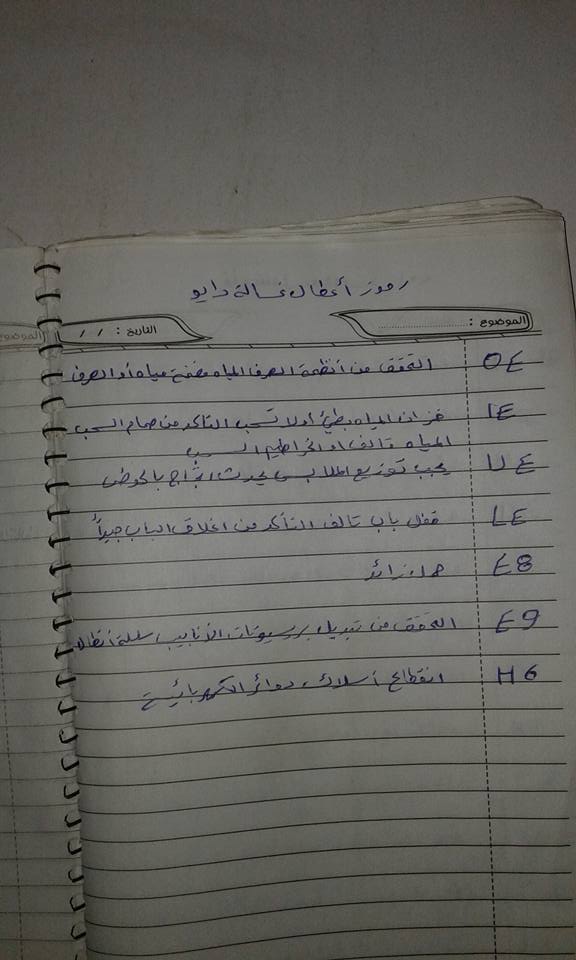 رموز أعطال غسالة دايو
الموضوع : التاريخ : / /
OE التحقق من أنظمة الصرف المياه مضخة مياه أو الصرف
IE خزان المياه بطيئ أو لا تسحب التأكد من صمام السحب
المياه تالف او الخراطيم السحب
UE يجب توزيع الملابس يحدث ارتجاج بالحوض
LE قفل باب تالف التأكد من اغلاق الباب جيداً
E8 حمل زائد
E9 التحقق من تبديل الأنابيب سلسلة
H6 انقطاع أسلاك دوائر الكهربائية